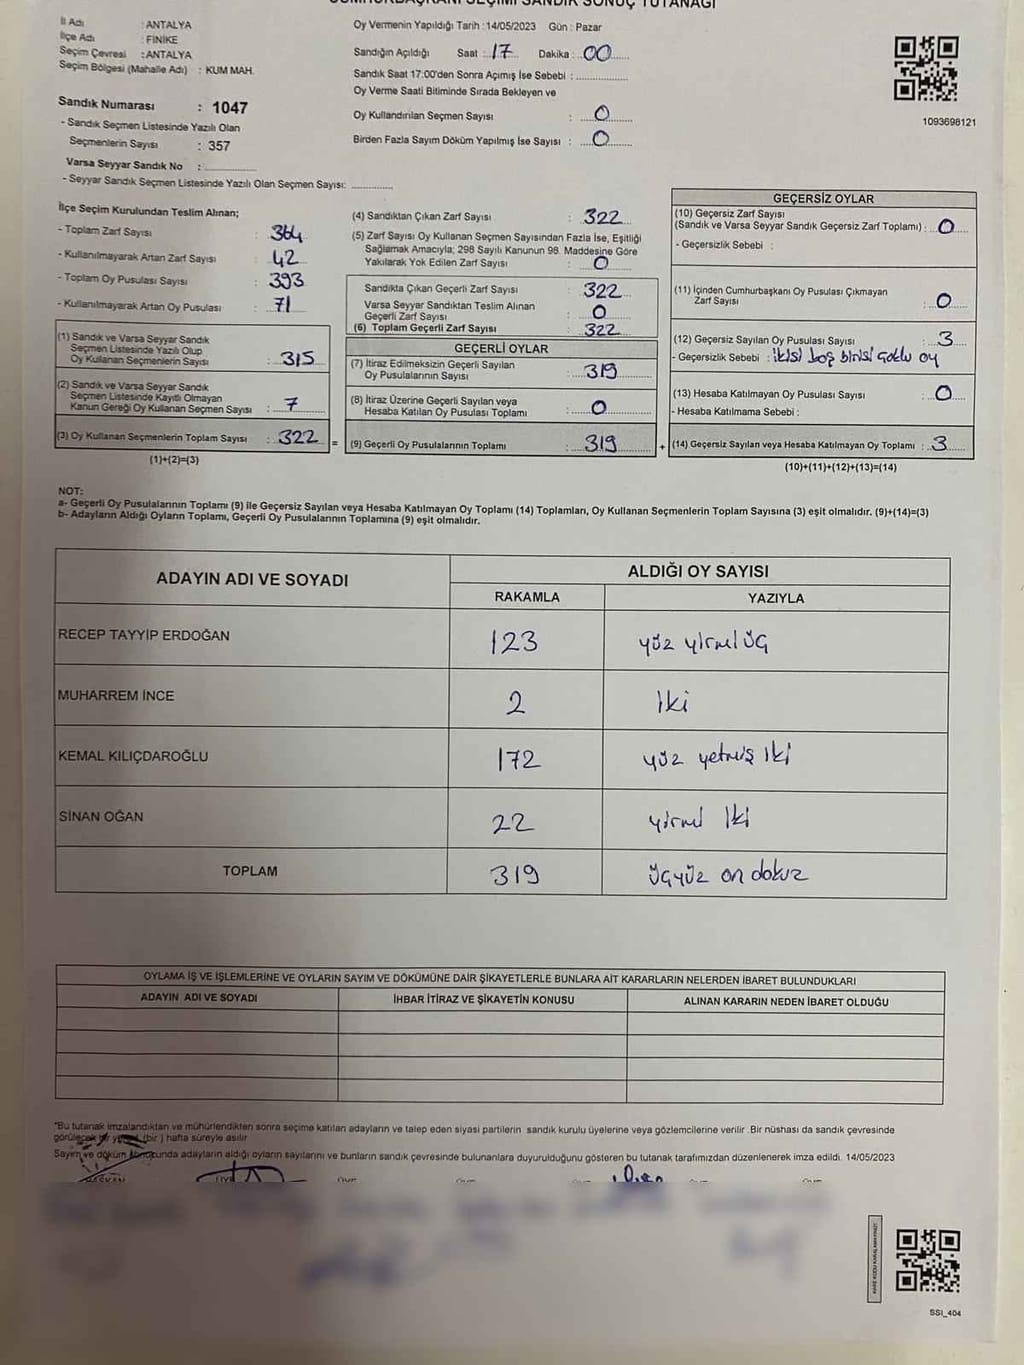 CUMHURBAŞKANI SEÇİMİ SANDIK SONUÇ TUTANAĞI
İl Adı : ANTALYA
İlçe Adı : FİNİKE
Seçim Çevresi : ANTALYA
Seçim Bölgesi (Mahalle Adı) : KUM MAH.
Sandık Numarası : 1047
- Sandık Seçmen Listesinde Yazılı Olan
Seçmenlerin Sayısı : 357
Varsa Seyyar Sandık No :
- Seyyar Sandık Seçmen Listesinde Yazılı Olan Seçmen Sayısı:
Oy Vermenin Yapıldığı Tarih : 14/05/2023 Gün : Pazar
Sandığın Açıldığı Saat : 17 Dakika : 00
Sandık Saat 17:00'den Sonra Açımış İse Sebebi :
Oy Verme Saati Bitiminde Sırada Bekleyen ve
Oy Kullandırılan Seçmen Sayısı : 0
Birden Fazla Sayım Döküm Yapılmış İse Sayısı : 0
1093698121
İlçe Seçim Kurulundan Teslim Alınan;
- Toplam Zarf Sayısı : 364
- Kullanılmayarak Artan Zarf Sayısı : 42
- Toplam Oy Pusulası Sayısı : 393
- Kullanılmayarak Artan Oy Pusulası : 71
(1) Sandık ve Varsa Seyyar Sandık
Seçmen Listesinde Yazılı Olup
Oy Kullanan Seçmenlerin Sayısı : 315
(2) Sandık ve Varsa Seyyar Sandık
Seçmen Listesinde Kayıtlı Olmayan
Kanun Gereği Oy Kullanan Seçmen Sayısı : 7
(3) Oy Kullanan Seçmenlerin Toplam Sayısı : 322 =
(1)+(2)=(3)
(4) Sandıktan Çıkan Zarf Sayısı : 322
(5) Zarf Sayısı Oy Kullanan Seçmen Sayısından Fazla İse, Eşitliği
Sağlamak Amacıyla; 298 Sayılı Kanunun 98. Maddesine Göre
Yakılarak Yok Edilen Zarf Sayısı : 0
Sandıkta Çıkan Geçerli Zarf Sayısı : 322
Varsa Seyyar Sandıktan Teslim Alınan
Geçerli Zarf Sayısı : 0
(6) Toplam Geçerli Zarf Sayısı : 322
GEÇERLİ OYLAR
(7) İtiraz Edilmeksizin Geçerli Sayılan
Oy Pusulalarının Sayısı : 319
(8) İtiraz Üzerine Geçerli Sayılan veya
Hesaba Katılan Oy Pusulası Toplamı : 0
(9) Geçerli Oy Pusulalarının Toplamı : 319 +
GEÇERSİZ OYLAR
(10) Geçersiz Zarf Sayısı
(Sandık ve Varsa Seyyar Sandık Geçersiz Zarf Toplamı) : 0
- Geçersizlik Sebebi :
(11) İçinden Cumhurbaşkanı Oy Pusulası Çıkmayan
Zarf Sayısı : 0
(12) Geçersiz Sayılan Oy Pusulası Sayısı : 3
- Geçersizlik Sebebi : ikisi boş birisi çoklu oy
(13) Hesaba Katılmayan Oy Pusulası Sayısı : 0
- Hesaba Katılmama Sebebi :
(14) Geçersiz Sayılan veya Hesaba Katılmayan Oy Toplamı : 3
(10)+(11)+(12)+(13)=(14)
NOT:
a- Geçerli Oy Pusulalarının Toplamı (9) ile Geçersiz Sayılan veya Hesaba Katılmayan Oy Toplamı (14) Toplamları, Oy Kullanan Seçmenlerin Toplam Sayısına (3) eşit olmalıdır. (9)+(14)=(3)
b- Adayların Aldığı Oyların Toplamı, Geçerli Oy Pusulalarının Toplamına (9) eşit olmalıdır.
ADAYIN ADI VE SOYADI ALDIĞI OY SAYISI
RAKAMLA YAZIYLA
RECEP TAYYİP ERDOĞAN 123 yüz yirmi üç
MUHARREM İNCE 2 iki
KEMAL KILIÇDAROĞLU 172 yüz yetmiş iki
SİNAN OĞAN 22 yirmi iki
TOPLAM 319 üçyüz on dokuz
OYLAMA İŞ VE İŞLEMLERİNE VE OYLARIN SAYIM VE DÖKÜMÜNE DAİR ŞİKAYETLERLE BUNLARA AİT KARARLARIN NELERDEN İBARET BULUNDUKLARI
ADAYIN ADI VE SOYADI İHBAR İTİRAZ VE ŞİKAYETİN KONUSU ALINAN KARARIN NEDEN İBARET OLDUĞU
"Bu tutanak imzalandıktan ve mühürlendikten sonra seçime katılan adayların ve talep eden siyasi partilerin sandık kurulu üyelerine veya gözlemcilerine verilir .Bir nüshası da sandık çevresinde
görülecek bir yere (bir ) hafta süreyle asılır
Sayım ve döküm sonucunda adayların aldığı oyların sayılarını ve bunların sandık çevresinde bulunanlara duyurulduğunu gösteren bu tutanak tarafımızdan düzenlenerek imza edildi. 14/05/2023
BAŞKAN
SSI_404